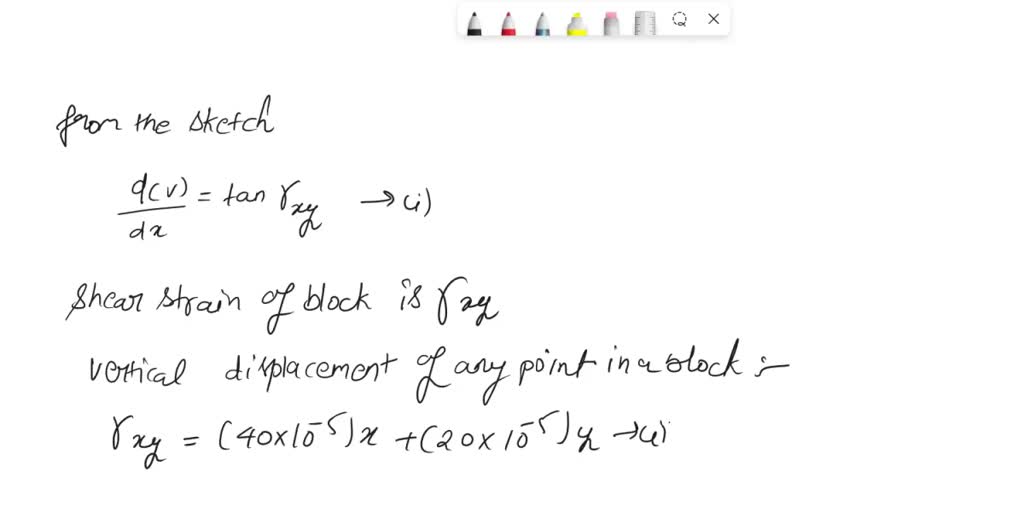 from the sketch
d(v)/dx = tan γxy → (i)
shear strain of block is γxy
vertical displacement of any point in a block :-
γxy = (40×10⁻⁵)x + (20×10⁻⁵)y → (i)